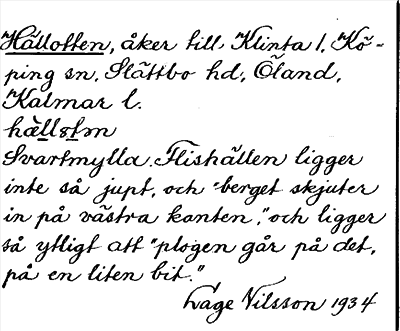 Hällotten, åker till Klinta 1, Kö-
ping sn, Slättbo hd, Öland,
Kalmar l.
Svartmylla. Flishällen ligger
inte så jupt, och "berget skjuter
in på västra kanten," och ligger
så ytligt att "plogen går på det,
på en liten bit."
Låge Nilsson 1934